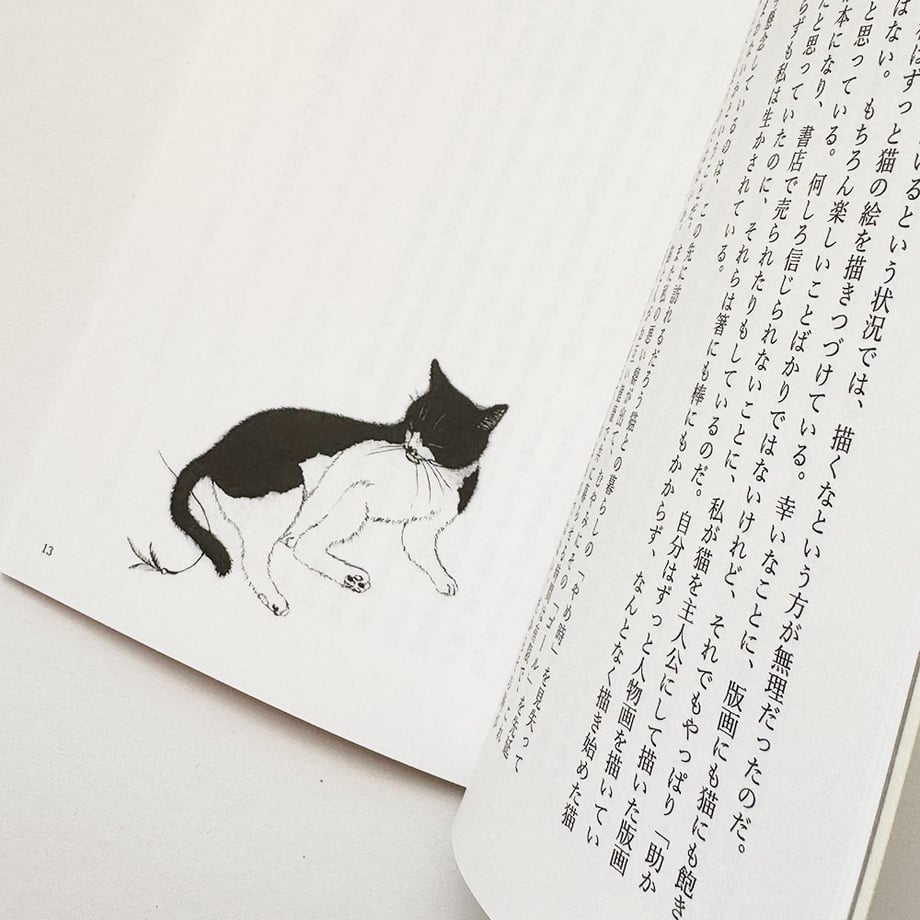 いるという状況では、描くなという方が無理だったのだ。
はずっと猫の絵を描きつづけている。幸いなことに、版画にも猫にも飽き
はない。もちろん楽しいことばかりではないけれど、それでもやっぱり「助か
と思っている。何しろ信じられないことに、私が猫を主人公にして描いた版画
本になり、書店で売られたりもしているのだ。自分はずっと人物画を描いてい
たと思っていたのに、それらは箸にも棒にもかからず、なんとなく描き始めた猫
らずも私は生かされている。
懸念しているのは、この先に訪れるだろう猫との暮らしの「やめ時」を見失って
13